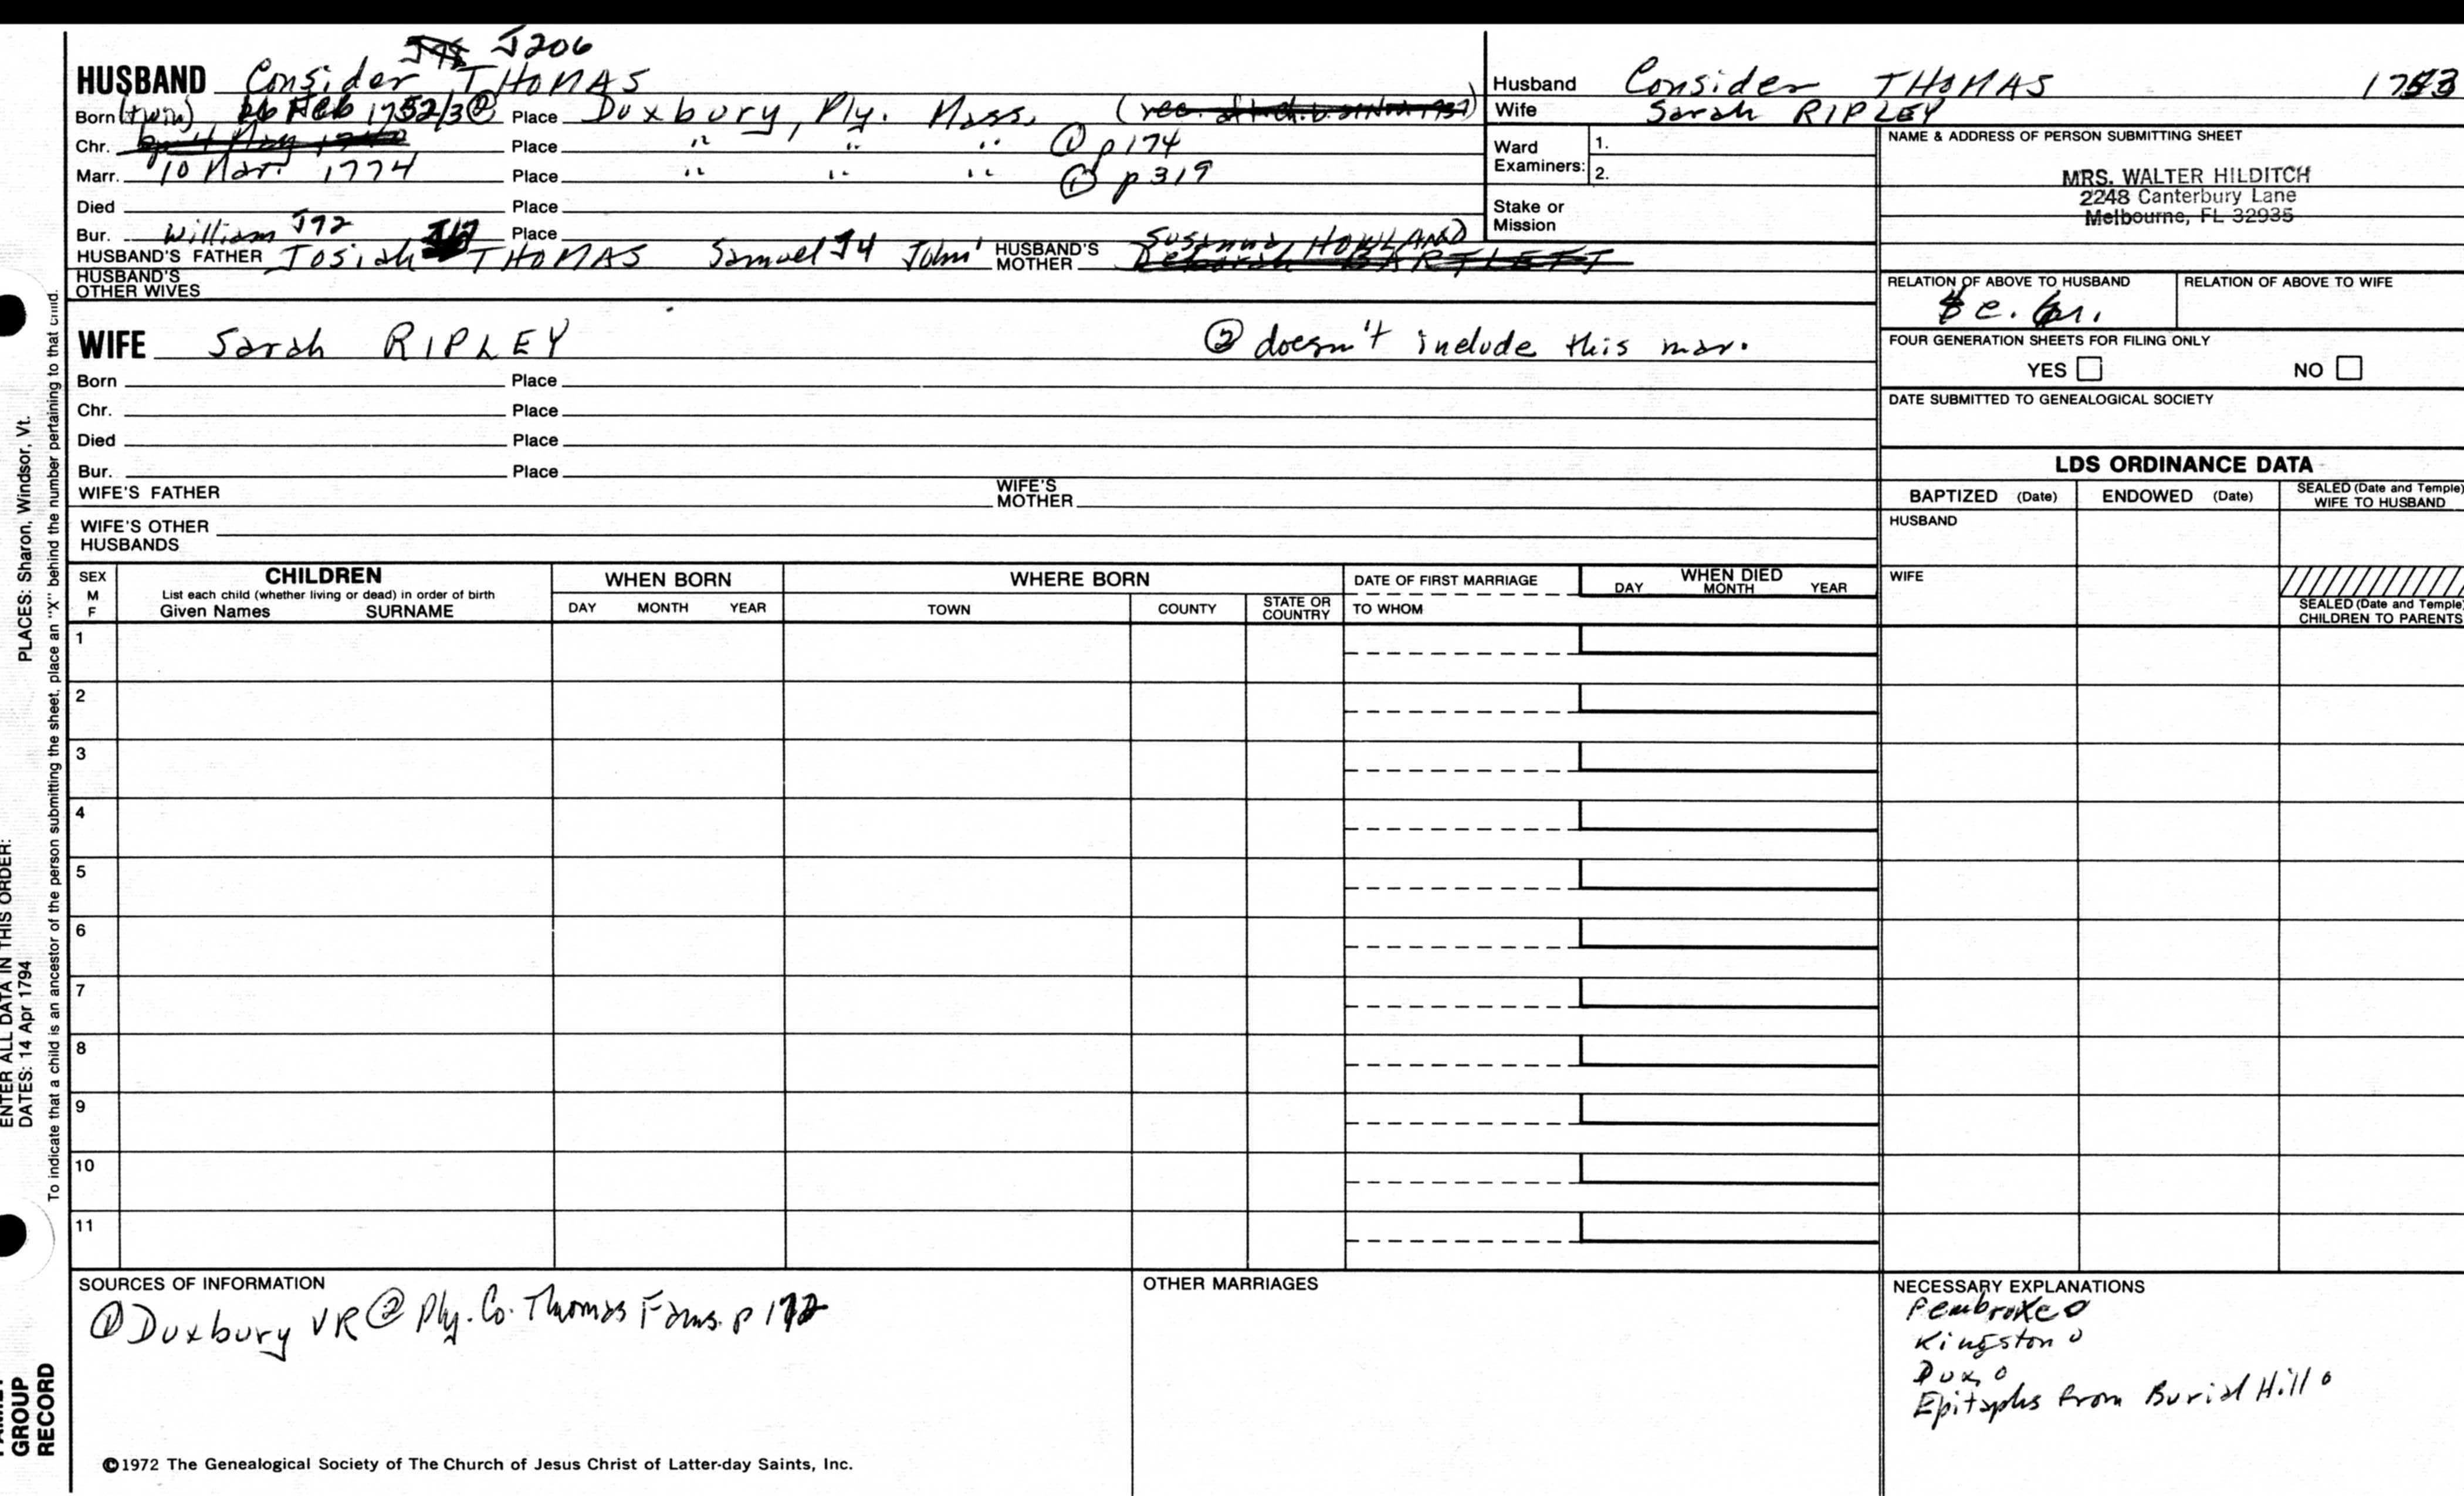 J206
HUSBAND Consider THOMAS
Born (twin) 26 Feb 1752/3 ② Place Duxbury, Ply. Mass. (rec.
Chr. Place " " " ① p 174
Marr. 10 Mar. 1774 Place " " " ① p 319
Died Place
Bur. Place
William J72 Susanna HOWLAND
HUSBAND'S FATHER Josiah THOMAS Samuel J4 John¹ HUSBAND'S MOTHER
HUSBAND'S OTHER WIVES
WIFE Sarah RIPLEY ② doesn't include this mar.
Born Place
Chr. Place
Died Place
Bur. Place
WIFE'S FATHER WIFE'S MOTHER
WIFE'S OTHER HUSBANDS
Husband Consider THOMAS 1753
Wife Sarah RIPLEY
Ward Examiners: 1.
2.
Stake or Mission
NAME & ADDRESS OF PERSON SUBMITTING SHEET
MRS. WALTER HILDITCH
2248 Canterbury Lane
Melbourne, FL 32935
RELATION OF ABOVE TO HUSBAND RELATION OF ABOVE TO WIFE
FOUR GENERATION SHEETS FOR FILING ONLY
YES NO
DATE SUBMITTED TO GENEALOGICAL SOCIETY
LDS ORDINANCE DATA
BAPTIZED (Date) ENDOWED (Date) SEALED (Date and Temple) WIFE TO HUSBAND
HUSBAND
WIFE
SEALED (Date and Temple) CHILDREN TO PARENTS
SEX M F
CHILDREN
List each child (whether living or dead) in order of birth
Given Names SURNAME
WHEN BORN
DAY MONTH YEAR
WHERE BORN
TOWN COUNTY STATE OR COUNTRY
DATE OF FIRST MARRIAGE
TO WHOM
WHEN DIED
DAY MONTH YEAR
1
2
3
4
5
6
7
8
9
10
11
SOURCES OF INFORMATION
① Duxbury VR ② Ply. Co. Thomas Fams. p 172
OTHER MARRIAGES
NECESSARY EXPLANATIONS
Pembroke o
Kingston o
Dux. o
Epitaphs from Burial Hill o
©1972 The Genealogical Society of The Church of Jesus Christ of Latter-day Saints, Inc.
GROUP
RECORD
ENTER ALL DATA IN THIS ORDER:
DATES: 14 Apr 1794 PLACES: Sharon, Windsor, Vt.
To indicate that a child is an ancestor of the person submitting the sheet, place an "X" behind the number pertaining to that child.